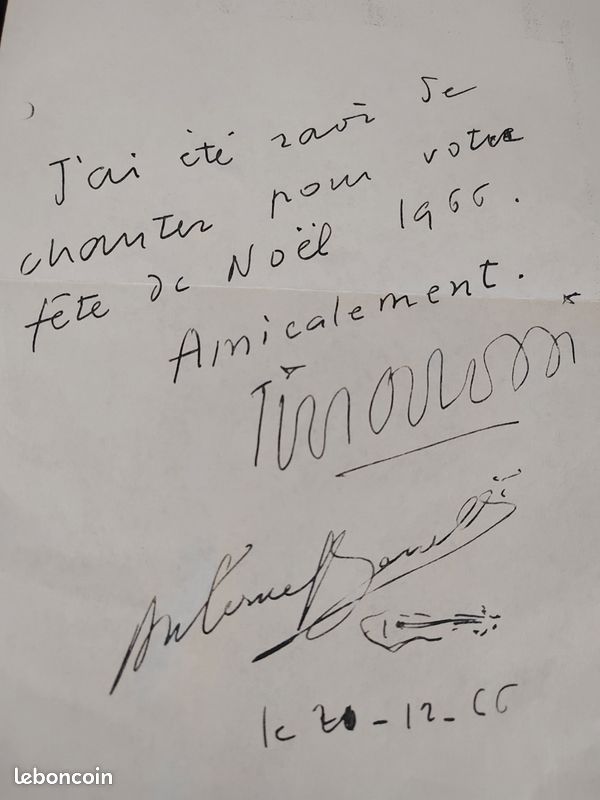 J'ai été ravi de
chanter pour votre
fête de Noël 1966.
Amicalement.
Tino Rossi
Antoine Bonelli
le 20-12-66
leboncoin